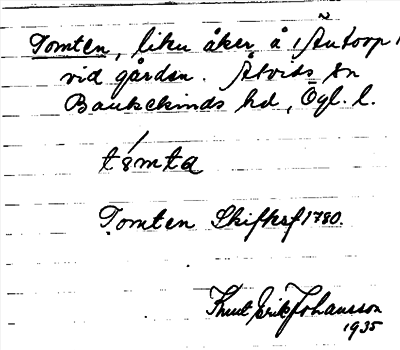 Tomten, liten åker å Åntorp 1
vid gården. Åtvids sn
Bankekinds hd, Ögl. l.
tomta
Tomten Skifksf 1780.
Knut Erik Johansson
1935